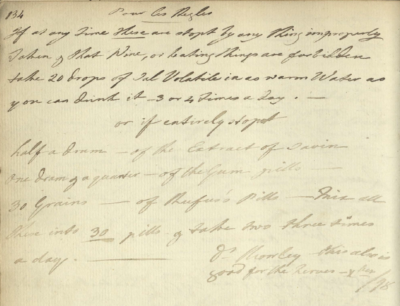 134
Pour les Regles
If at any Time these are stopt by any thing improperly
Taken, & that Wine, or heating things are forbidden
take 20 drops of Sal Volatile in as warm Water as
you can drink it - 3 or 4 times a day. -
or if entirely stopt
half a dram - of the Extract of Savin
One dram & a quarter - of the Gum pills -
30 Grains - of Rufus's Pills - Mix all
these into 30 pills & take two three times
a day. -
Dr Morley this also is
good for the nerves -